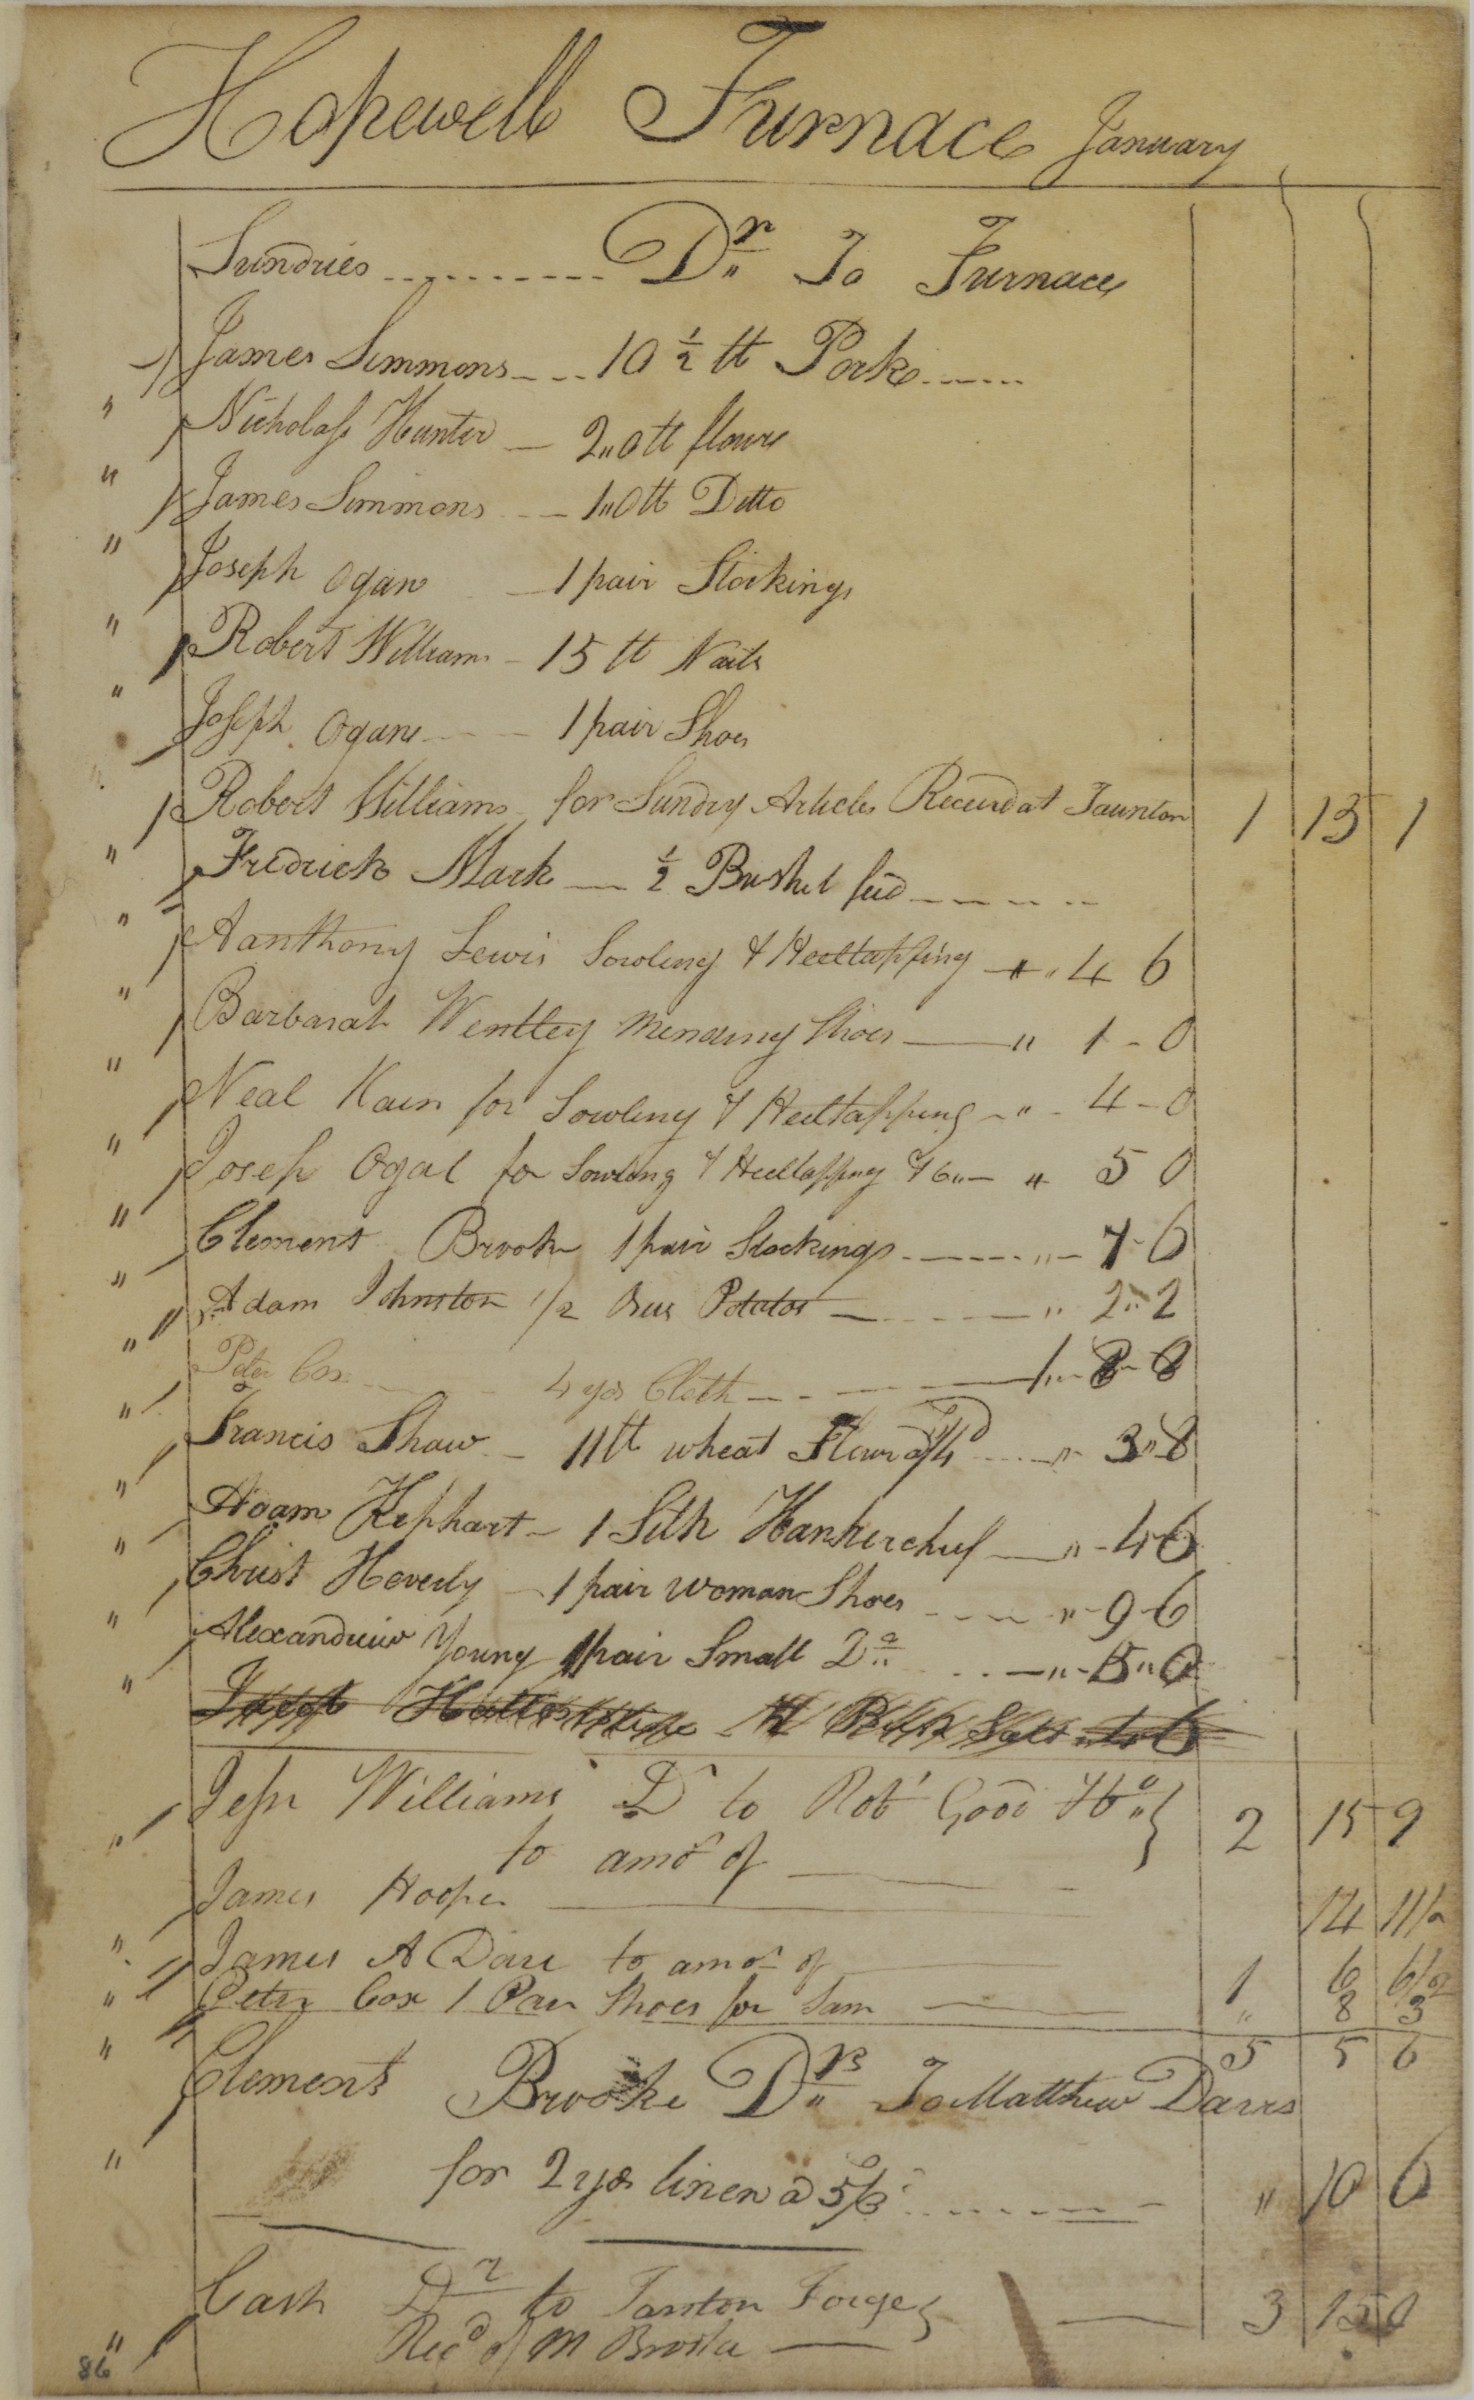 Hopewell Furnace January
Sundries Dr To Furnace
James Simmons 10 1/2 lt Pork
" Nicholass Hunter 2"0 lt flowr
" James Simmons 1"0 lt Ditto
" Joseph Ogan 1 pair Stockings
" Robert Williams 15 lt Nails
" Joseph Ogane 1 pair Shoes
Robert Williams for Sundry Articles Receivd at Taunton 1 13 1
" Fredrick Mark 1/2 Bushel
" Aanthony Lewis Sowling & Heeltapping " 4 6
" Barbarah Wentley mending Shoes " 1 - 0
" Neal Kain for Sowling & Heeltapping " 4 - 0
" Joseph Ogal for Sowling & Heeltapping " 5 0
" Clement Brooke 1 pair Stockings " 7 - 6
" Adam Johnston 1/2 Bus Potatos " 2 " 2
" Peter Cox 4 yds Cloth 1 " 8 - 8
" Francis Shaw 11 lt wheat Flowr a /4d " 3 " 8
" Adam Kephart 1 Silk Hankerchief " 4 6
" Christ Heverly 1 pair woman Shoes " 9 - 6
" Alexandriew Young 1 pair Small Do " 5 " 0
" Salt
Jesse Williams Dr to Robt Good &Co
" to amot of 2 15 9
James Hooper 14 11 1/2
" James A Dare to amot of 1 6 6 1/2
" Peter Cox 1 Pair Shoes for Sam " 8 3
5 5 6
" Clement Brooke Drs To Matthew Davis
" for 2 yds linen a 5/3 " 10 6
Cash Dr to Tanton Forge 3 15 0
" Recd of M Brooke
86